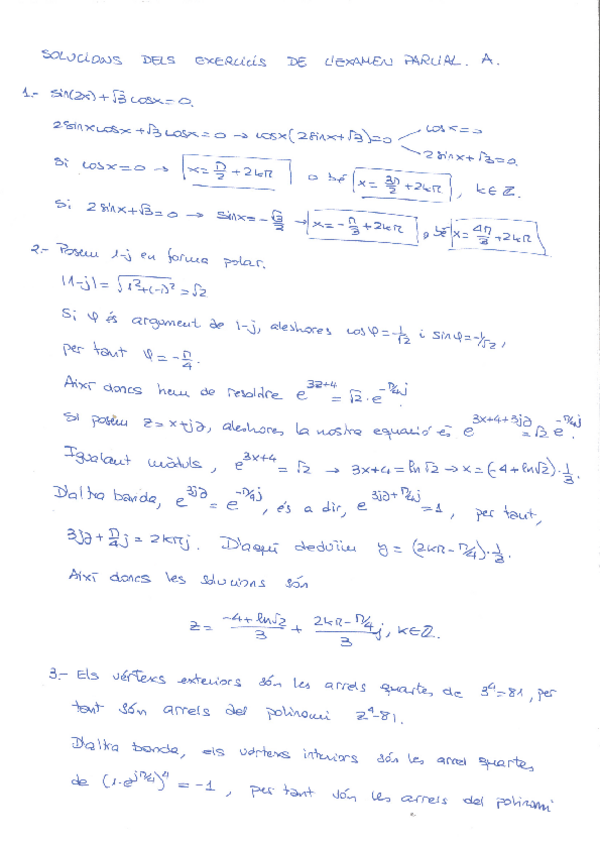 SOLUCIONS DELS EXERCICIS DE L'EXAMEN PARCIAL. A.
1.- sin(2x)+√3 cosx=0.
2sinxcosx+√3 cosx=0 → cosx(2sinx+√3)=0 cosx=0
2sinx+√3=0.
Si cosx=0 → x=π/2+2kπ o bé x=3π/2+2kπ, k∈Z.
Si 2sinx+√3=0 → sinx=-√3/2 → x=-π/3+2kπ, o bé x=4π/3+2kπ
2.- Posem 1-j en forma polar.
|1-j|=√(1²+(-1)²)=√2
Si φ és argument de 1-j, aleshores cosφ=1/√2 i sinφ=-1/√2,
per tant φ=-π/4.
Així doncs hem de resoldre e^(3z+4)=√2·e^(-π/4j).
Si posem z=x+jy, aleshores la nostra equació és e^(3x+4+3jy)=√2 e^(-π/4j).
Igualant mòduls, e^(3x+4)=√2 → 3x+4=ln√2 → x=(-4+ln√2)·1/3.
D'altra banda, e^(3jy)=e^(-π/4j), és a dir, e^(3jy+π/4j)=1, per tant,
3jy+π/4j=2kπj. D'aquí deduïm y=(2kπ-π/4)·1/3.
Així doncs les solucions són
z=(-4+ln√2)/3+(2kπ-π/4)/3 j, k∈Z.
3.- Els vèrtexs exteriors són les arrels quartes de 3⁴=81, per
tant són arrels del polinomi z⁴-81.
D'altra banda, els vèrtexs interiors són les arrel quartes
de (1·e^(jπ/4))⁴=-1, per tant són les arrels del polinomi